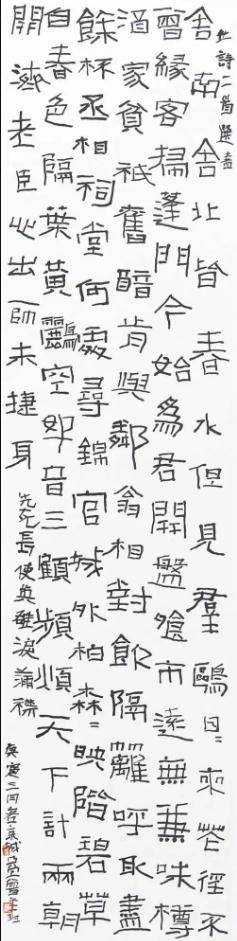 杜詩二首
舍南舍北皆春水但見群鷗日〻來花徑不
曾緣客掃蓬門今始為君開盤飧市遠無兼味樽
酒家貧祇舊醅肯與鄰翁相對飲隔籬呼取盡
餘杯丞相祠堂何處尋錦官城外柏森〻映階碧草
自春色隔葉黃鸝空好音三顧頻煩天下計兩朝
開濟老臣心出師未捷身先死長使英雄淚滿襟